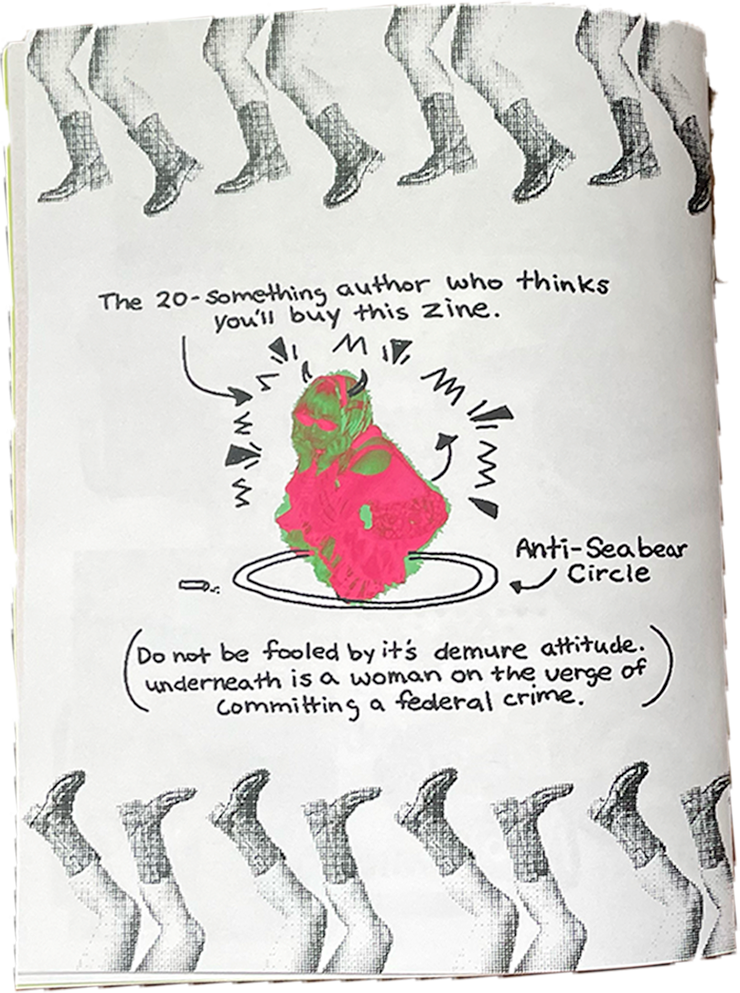 The 20-something author who thinks
you'll buy this zine.
Anti-Seabear
Circle
(Do not be fooled by it's demure attitude.
underneath is a woman on the verge of
committing a federal crime.)